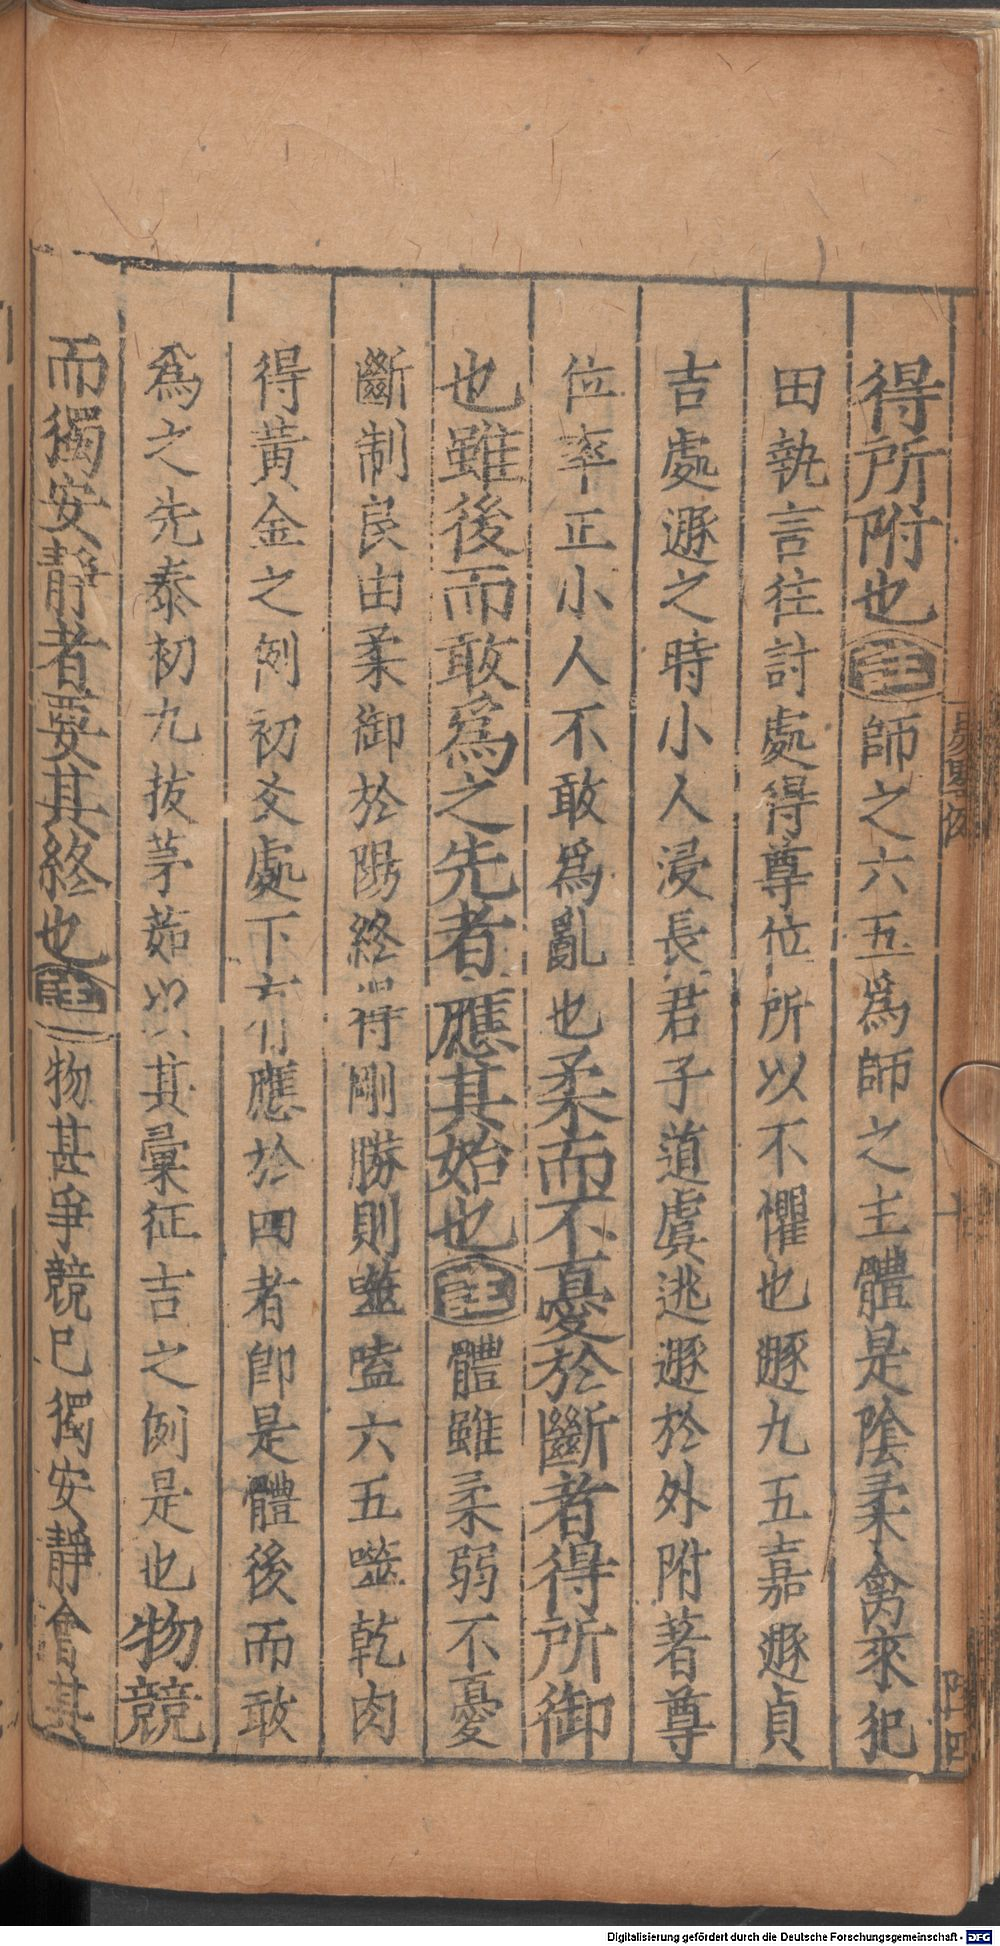 得所附也註師之六五爲師之主體是陰柔禽來犯
田執言往討處得尊位所以不懼也遯九五嘉遯貞
吉處遯之時小人浸長君子道虞逃遯於外附著尊
位率正小人不敢爲亂也柔而不憂於斷者得所御
也雖後而敢爲之先者應其始也註體雖柔弱不憂
斷制良由柔御於陽終得剛勝則噬嗑六五噬乾肉
得黃金之例初爻處下有應於四者卽是體後而敢
爲之先泰初九拔茅茹以其彙征吉之例是也物競
而獨安靜者要其終也註物甚爭競已獨安靜會其
Digitalisierung gefördert durch die Deutsche Forschungsgemeinschaft - DFG